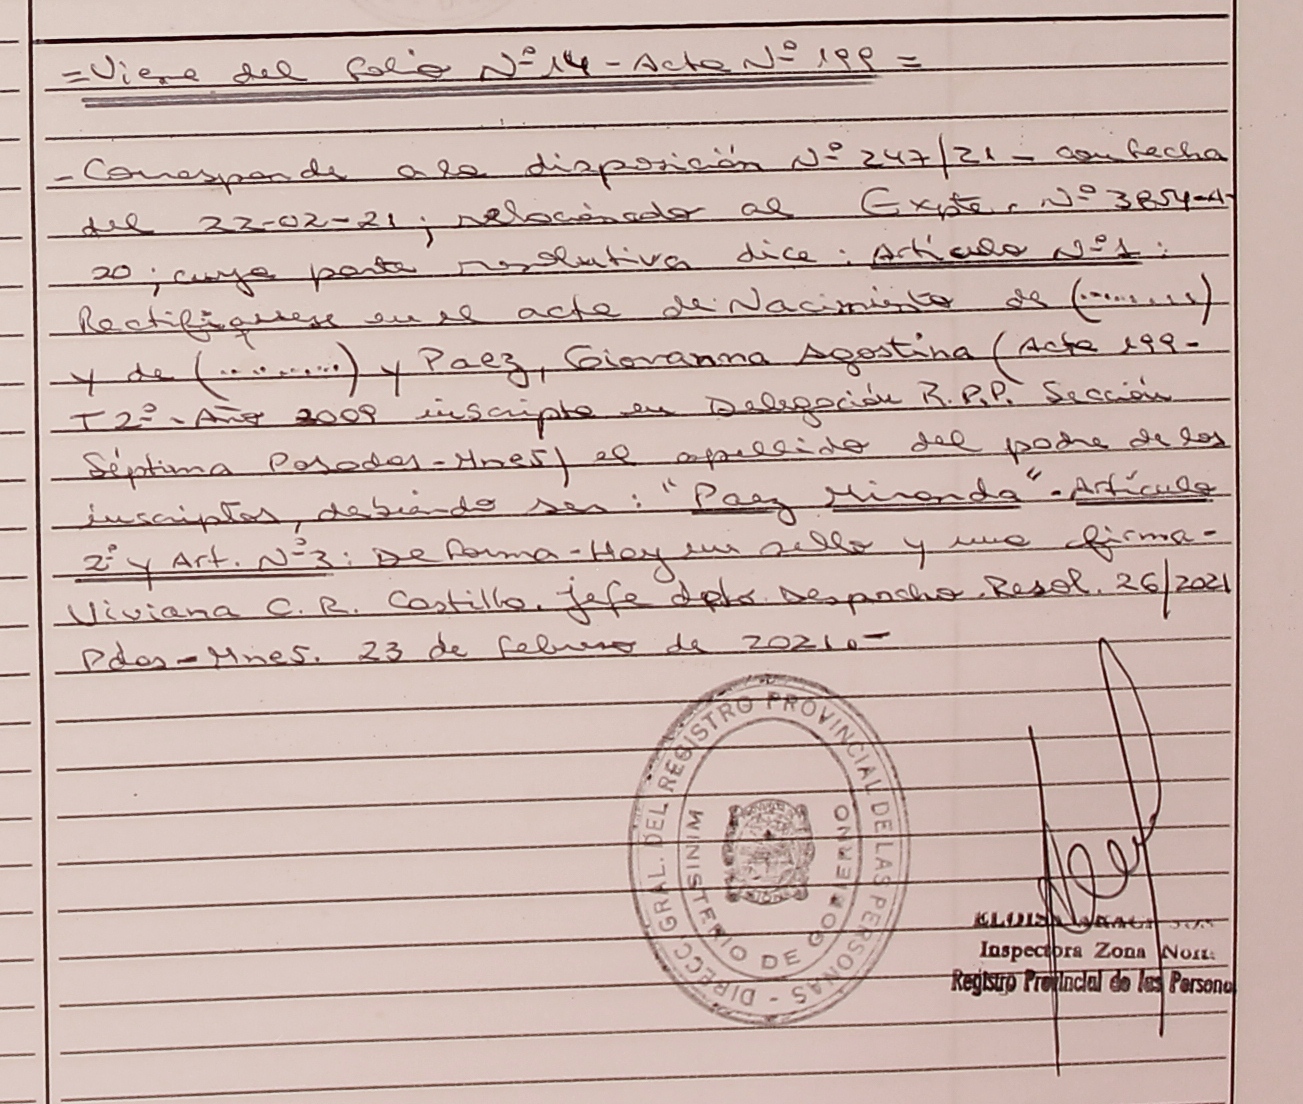 =Viene del folio Nº 14 - Acta Nº 199 =
- Corresponde a la disposición Nº 247/21 - con fecha
del 22-02-21; relacionado al Expte. Nº 3854-A-
20; cuya parte resolutiva dice: Artículo Nº 1:
Rectifíquese en el acta de Nacimiento de (.........)
y de (.........) y Paez, Giovanna Agostina (Acta 199-
T 2º - Año 2009 inscripta en Delegación R.P.P. Sección
Séptima Posadas-Mnes) el apellido del padre de los
inscriptos, debiendo ser: "Paez Miranda" - Artículo
2º y Art. Nº 3: De forma - Hay un sello y una firma -
Viviana C. R. Castillo. jefe dpto. Despacho. Resol. 26/2021
Pdas - Mnes. 23 de febrero de 2021.-
DIRECC GRAL. DEL REGISTRO PROVINCIAL DE LAS PERSONAS -
MINISTERIO DE GOBIERNO
Inspectora Zona
Registro Provincial de las Persona